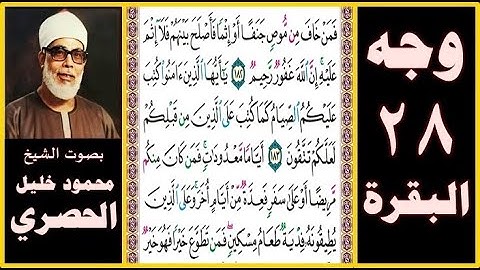 وجه
٢٨
البقرة
فَمَنْ خَافَ مِن مُّوصٍ جَنَفًا أَوْ إِثْمًا فَأَصْلَحَ بَيْنَهُمْ فَلَآ إِثْمَ
عَلَيْهِ إِنَّ ٱللَّهَ غَفُورٌ رَّحِيمٌ ١٨٢ يَٰٓأَيُّهَا ٱلَّذِينَ ءَامَنُوا۟ كُتِبَ
عَلَيْكُمُ ٱلصِّيَامُ كَمَا كُتِبَ عَلَى ٱلَّذِينَ مِن قَبْلِكُمْ
لَعَلَّكُمْ تَتَّقُونَ ١٨٣ أَيَّامًا مَّعْدُودَٰتٍ فَمَن كَانَ مِنكُم
مَّرِيضًا أَوْ عَلَىٰ سَفَرٍ فَعِدَّةٌ مِّنْ أَيَّامٍ أُخَرَ وَعَلَى ٱلَّذِينَ
يُطِيقُونَهُۥ فِدْيَةٌ طَعَامُ مِسْكِينٍ فَمَن تَطَوَّعَ خَيْرًا فَهُوَ خَيْرٌ
بصوت الشيخ
محمود خليل
الحصري